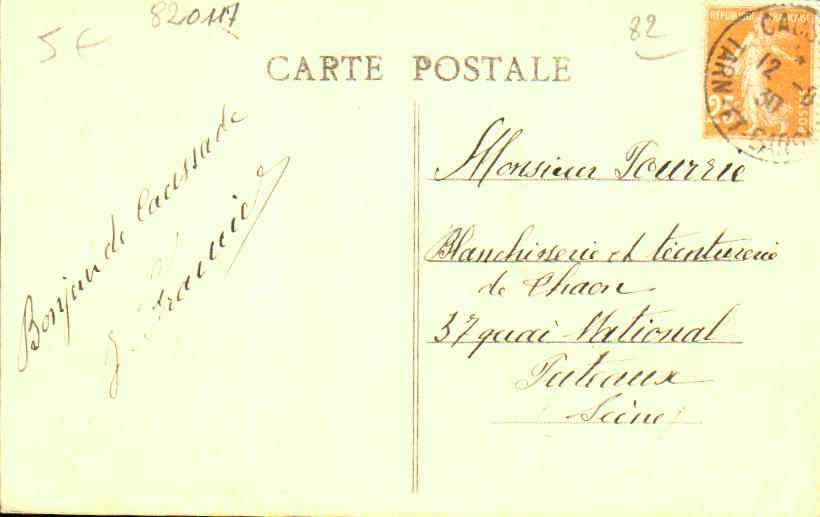 5 €
820117
82
CARTE POSTALE
REPUBLIQUE FRANÇAISE
25c
POSTES
CAUS
12 -8
30
TARN ET GARO
Bonjour de Caussade
J.
Monsieur Tourrie
Blanchisserie et teinturerie
de Chaon
37 quai National
Puteaux
(Seine)